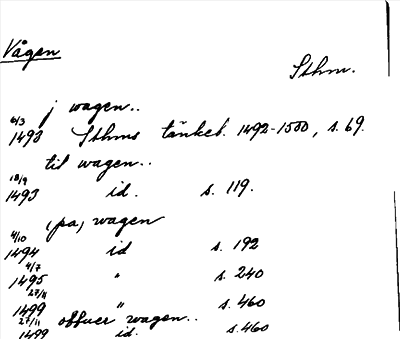 Vågen
Sthm.
j wagen..
6/3
1493 Sthms tänkeb. 1492-1500, s. 69.
til wagen..
18/9
1493 id. s. 119.
(pa) wagen
4/10
1494 id s. 192
4/7
1495 " s. 240
27/11
1499 " s. 460
27/11 offuer wagen..
1499 id. s. 460